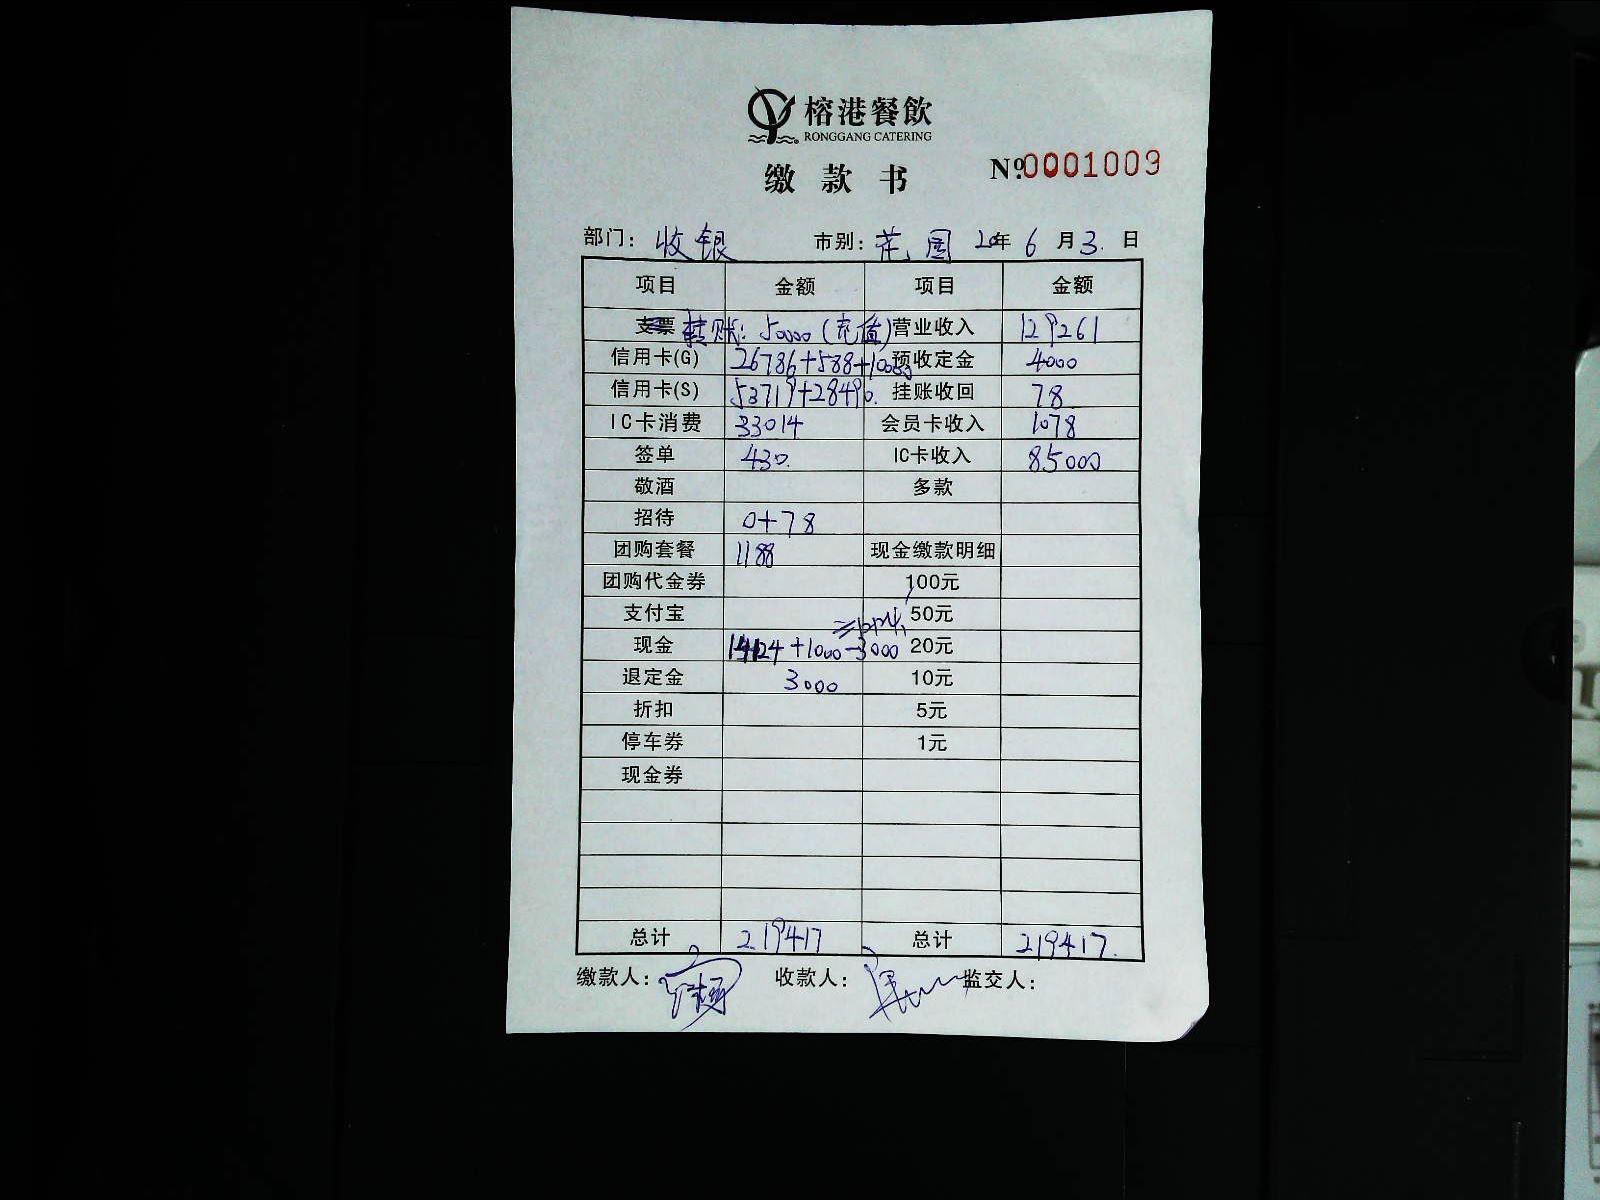 榕港餐飲
RONGGANG CATERING
缴款书 №0001009
部门：收银 市别：花园 20年6月3日
项目 金额 项目 金额
支票 转账：50000（充值） 营业收入 129261
信用卡(G) 26786+588+10000 预收定金 4000
信用卡(S) 53719+28490. 挂账收回 78
IC卡消费 33014 会员卡收入 1078
签单 430. IC卡收入 85000
敬酒 多款
招待 0+78
团购套餐 1188 现金缴款明细
团购代金券 100元
支付宝 50元
现金 14124+1000-3000 20元
退定金 3000 10元
折扣 5元
停车券 1元
现金券
总计 219417 总计 219417.
缴款人： 收款人： 监交人：